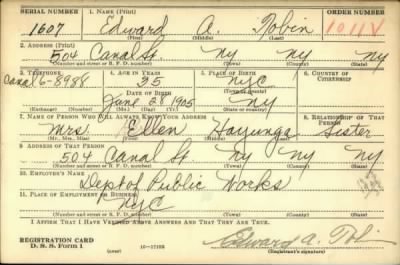 SERIAL NUMBER 1. NAME (Print) ORDER NUMBER
1607 Edward A. Tobin 1011V
(First) (Middle) (Last)
2. ADDRESS (Print)
504 Canal St. NY NY NY
(Number and street or R. F. D. number) (Town) (County) (State)
3. TELEPHONE 4. AGE IN YEARS 5. PLACE OF BIRTH 6. COUNTRY OF CITIZENSHIP
Canal 6-8988 35 NYC
DATE OF BIRTH (Town or county)
June 28 1905 NY
(Exchange) (Number) (Mo.) (Day) (Yr.) (State or country)
7. NAME OF PERSON WHO WILL ALWAYS KNOW YOUR ADDRESS 8. RELATIONSHIP OF THAT PERSON
Mrs Ellen Hayunga Sister
(Mr., Mrs., Miss) (First) (Middle) (Last)
9. ADDRESS OF THAT PERSON
504 Canal St. Ny Ny Ny
(Number and street or R. F. D. number) (Town) (County) (State)
10. EMPLOYER'S NAME
Dept of Public Works
11. PLACE OF EMPLOYMENT OR BUSINESS
NYC
(Number and street or R. F. D. number) (Town) (County) (State)
I AFFIRM THAT I HAVE VERIFIED ABOVE ANSWERS AND THAT THEY ARE TRUE.
REGISTRATION CARD
D. S. S. Form 1 (over) 16-17105 Edward A. Tobin
(Registrant's signature)